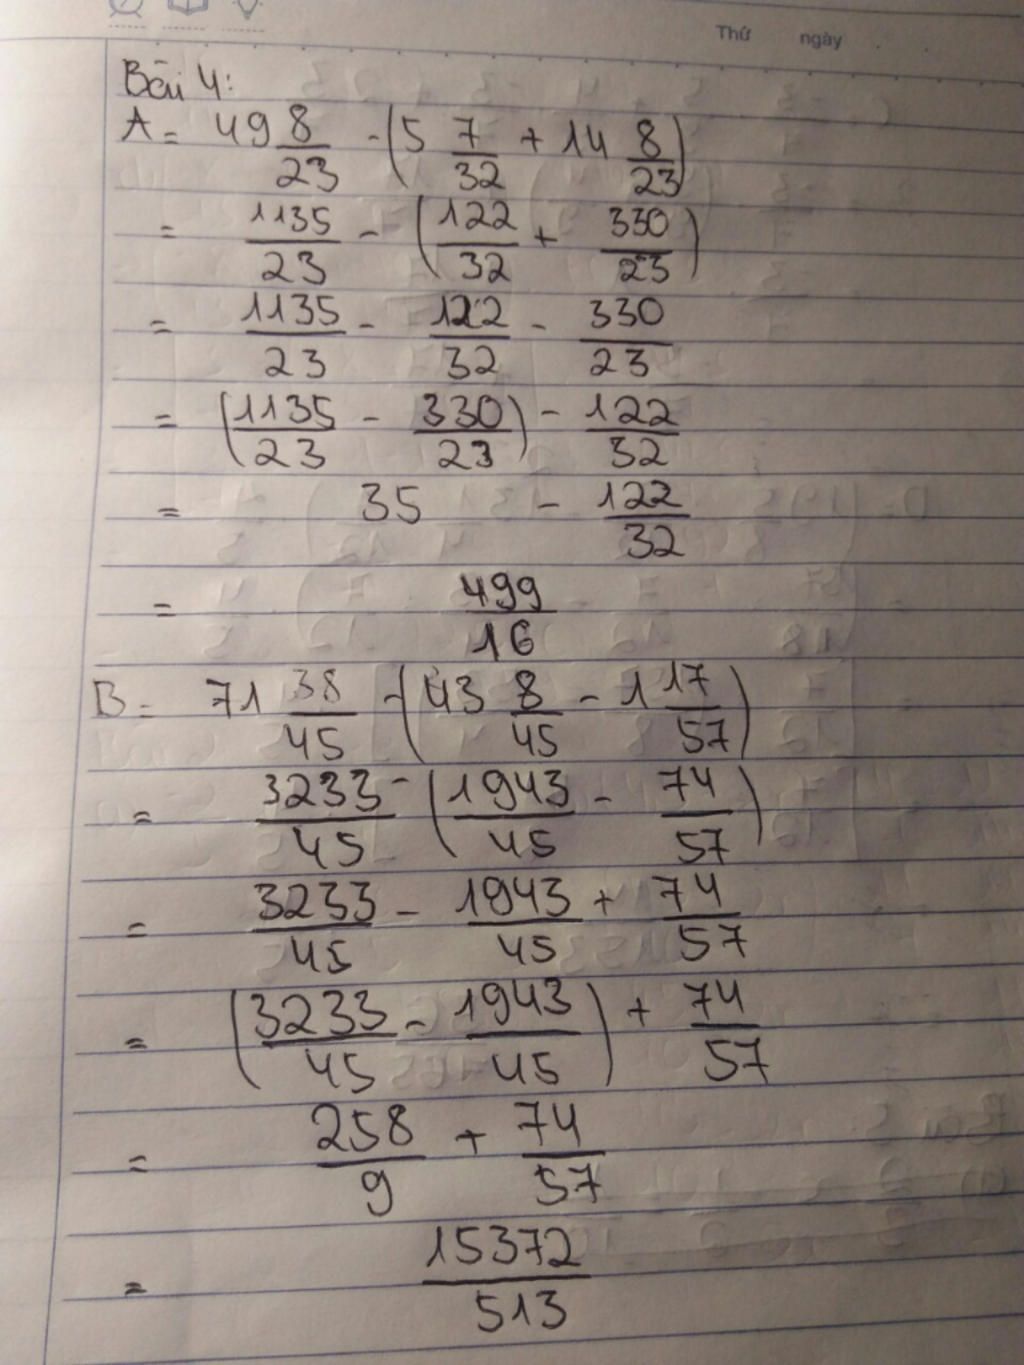 Thứ ngày
Bài 4:
A = 49 8/23 - (5 7/32 + 14 8/23)
= 1135/23 - (122/32 + 330/23)
= 1135/23 - 122/32 - 330/23
= (1135/23 - 330/23) - 122/32
= 35 - 122/32
= 499/16
B = 71 38/45 - (43 8/45 - 1 17/57)
= 3233/45 - (1943/45 - 74/57)
= 3233/45 - 1943/45 + 74/57
= (3233/45 - 1943/45) + 74/57
= 258/9 + 74/57
= 15372/513